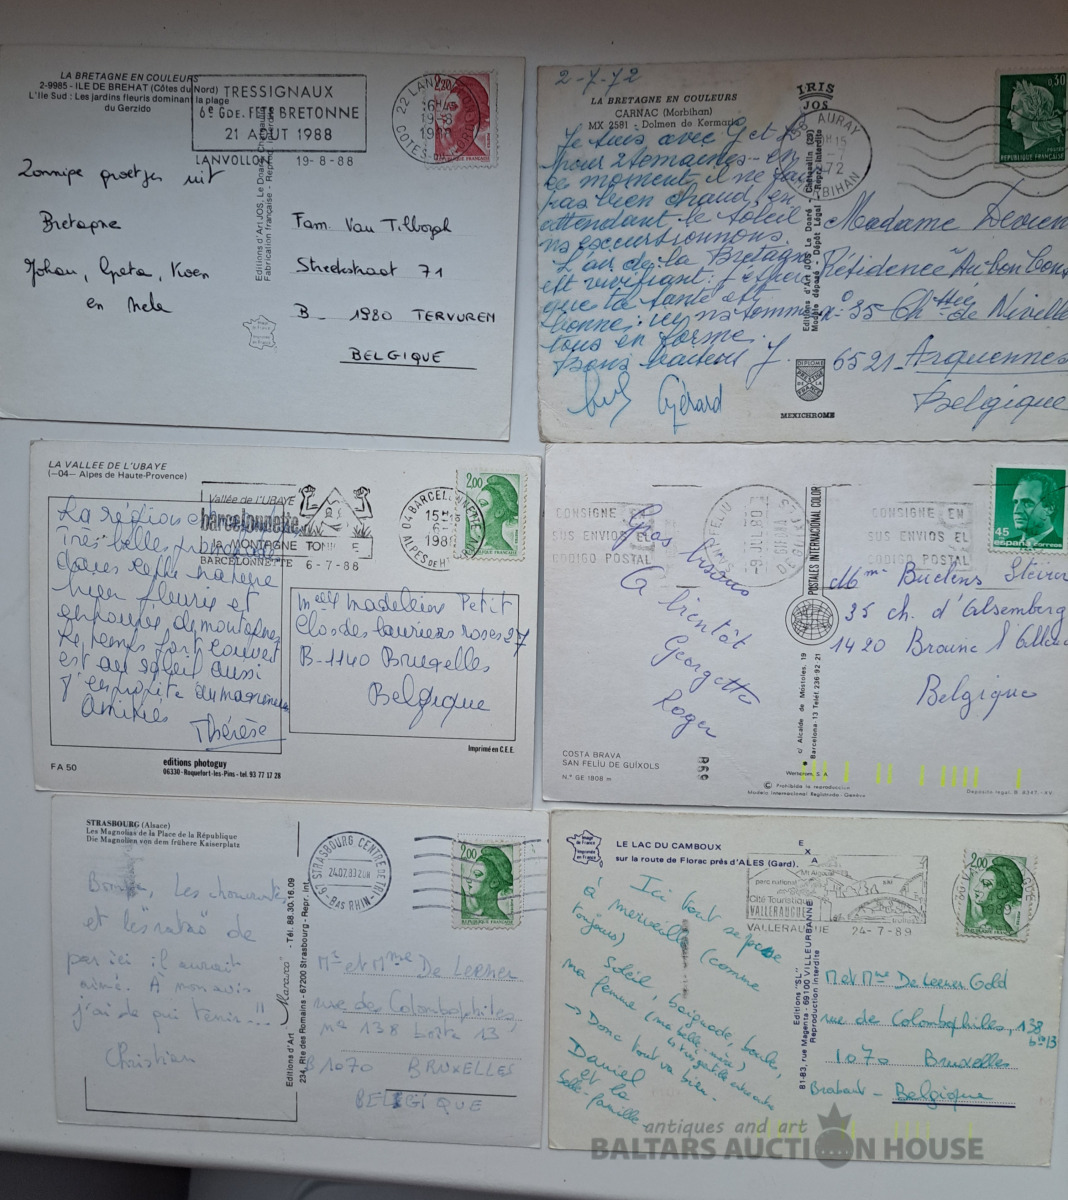 LA BRETAGNE EN COULEURS
2-9985 - ILE DE BREHAT (Côtes du Nord)
L'Ile Sud : Les jardins fleuris dominant la plage
du Gerzido
TRESSIGNAUX
6e GDE. FETE BRETONNE
21 AOUT 1988
LANVOLLON 19-8-88
2,20
Zonnige groetjes uit
Bretagne
Johan, Greta, Koen
en Nele
Editions d'Art JOS, Le Doaré, Chateaulin
Fabrication française - Reprod. interdite
Fam. Van Tilborgh
Streekstraat 71
B - 1980 TERVUREN
BELGIQUE
2-7-72
LA BRETAGNE EN COULEURS
CARNAC (Morbihan)
MX 2581 - Dolmen de Kermario
IRIS
JOS
AURAY
MORBIHAN
0,30
REPUBLIQUE FRANÇAISE
Je suis avec G et
pour 2 semaines - en
ce moment, il ne fait
pas bien chaud, en
attendant le soleil
ns excursionnons.
L'air de la Bretagne
est vivifiant. J'espère
que ta santé est
bonne; ici ns sommes
tous en forme.
Bons baisers
Gérard
Editions d'Art JOS Le Doaré - Chateaulin (29)
Modèle déposé - Dépôt Légal - Repr. interdite
DIPLOME
PRESTIGE
DE LA
FRANCE
MEXICHROME
Madame Devien
Résidence "Au bon
n° 35 Ch ssée de Nivelle
6521 - Arquennes
Belgique
LA VALLEE DE L'UBAYE
(-04- Alpes de Haute-Provence)
Vallée de l'UBAYE
barcelonnette
la MONTAGNE TONIQUE
BARCELONNETTE 6-7-88
04 BARCELONNETTE
2,00
La région est
très belle,
dans cette nature
bien fleurie et
entourée de montagnes
Le temps fort couvert
est au soleil aussi
j'en profite
Amitiés
Thérèse
Melle Madeleine Petit
Clos des lauriers roses 27
B-1140 Bruxelles
Belgique
Imprimé en C.E.E.
FA 50
editions photoguy
06330 - Roquefort-les-Pins - tel. 93 77 17 28
CONSIGNE EN
SUS ENVIOS EL
CODIGO POSTAL
CONSIGNE EN
SUS ENVIOS EL
CODIGO POSTAL
45
españa correos
Gros bisous
A bientôt
Georgette
Roger
POSTALES INTERNACIONAL COLOR
c/ Alcalde de Móstoles, 19
Barcelona-13 Teléf. 236 92 21
Mme Buelens
35 ch. d'Alsemberg
1420 Braine l'Alleud
Belgique
COSTA BRAVA
SAN FELIU DE GUIXOLS
N.° GE 1808 m
© Prohibida la reproducción
Modelo Internacional Registrado - Genève
STRASBOURG (Alsace)
Les Magnolias de la Place de la République
Die Magnolien von dem frühere Kaiserplatz
67 STRASBOURG CENTRE DE TRI
BAS RHIN
2,00
et les
par ici il aurait
aimé. À mon avis
j'ai de qui tenir...!!
Christian
Editions d'Art Marasco - Tél. 88.30.16.09
234, Rte des Romains - 67200 Strasbourg - Repr. int.
Mr et Mme De Leener
rue des Colombophiles,
n° 138 boîte 13
B 1070 BRUXELLES
BELGIQUE
LE LAC DU CAMBOUX
sur la route de Florac près d'ALES (Gard).
EXA
Mt Aigoual
parc national
Cité Touristique
VALLERAUGUE
VALLERAUGUE 24-7-89
2,00
Ici tout se passe
à merveille (comme
toujours) Soleil, baignade, boules,
ma femme (ma belle-mère)
→ Donc tout va bien.
Daniel
et la
belle-famille
Editions "SL"
81-83, rue Magenta - 69100 VILLEURBANNE
Reproduction interdite
M et Mme De Leener Gold
rue de Colombophiles, 138
bte 13
1070 Bruxelles
Brabant - Belgique
antiques and art
BALTARS AUCTION HOUSE